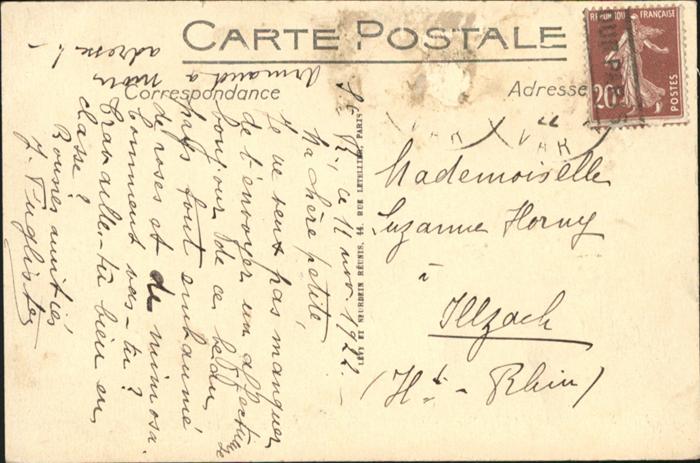 CARTE POSTALE
Correspondance
Adresse
RÉPUBLIQUE FRANÇAISE
20c
POSTES
VAR VAR
22
LÉVY ET NEURDEIN RÉUNIS, 44, RUE LETELLIER, PARIS
Mademoiselle
Suzanne Horny
à
Illzach
(Ht - Rhin)
ce 11 nov. 1922
Ma chère petite,
Je ne veux pas manquer
de t'envoyer un affectueux
bonjour de ce beau
pays tout embaumé
de roses et de mimosa.
Comment vas-tu ?
Travailles-tu bien en
classe ?
Bonnes amitiés
J. Fuglister
Armand a mon
adresse ! -